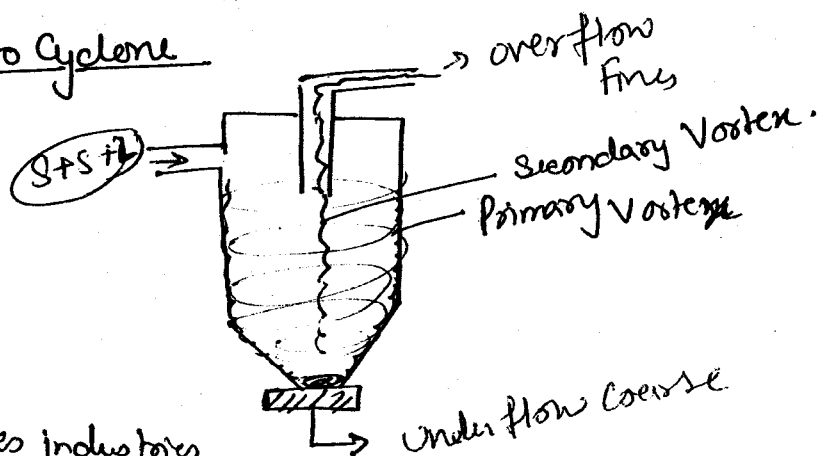 o Cyclone
overflow
Fines
S+S+L
Secondary Vortex.
Primary Vortex
Underflow Coarse
es industries